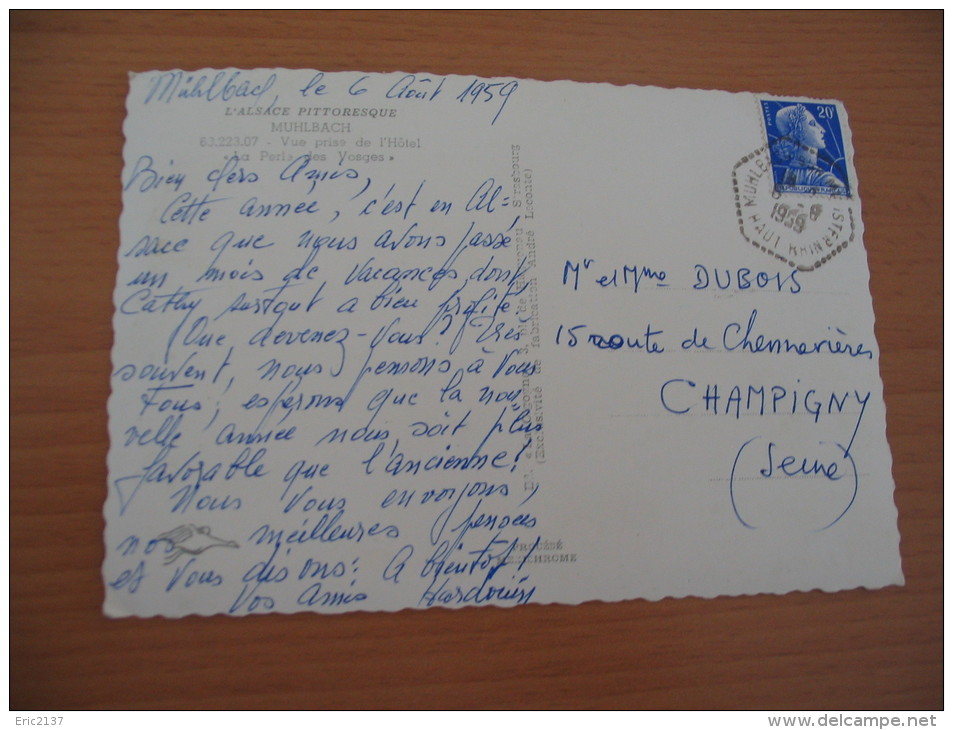 Mühlbach, le 6 Août 1959
L'ALSACE PITTORESQUE
MUHLBACH
63.223.07 - Vue prise de l'Hôtel
"La Perle des Vosges"
Bien chers Amis,
Cette année, c'est en Al=
sace que nous avons passé
un mois de Vacances, dont
Cathy surtout a bien profité.
Que devenez-vous? Très
souvent, nous pensons à Vous
Tous; espérons que la nou
velle année nous soit plus
favorable que l'ancienne!
Nous Vous envoyons,
nos meilleures pensées
et Vous disons: A bientôt!
Vos Amis Hardouin
Strasbourg
fabrication André Leconte)
PROCÉDÉ
20F
POSTES
1959
HAUT RHIN
Mr et Mme DUBOIS
15 route de Chennevières
CHAMPIGNY
(Seine)
Eric2137
www.delcampe.net